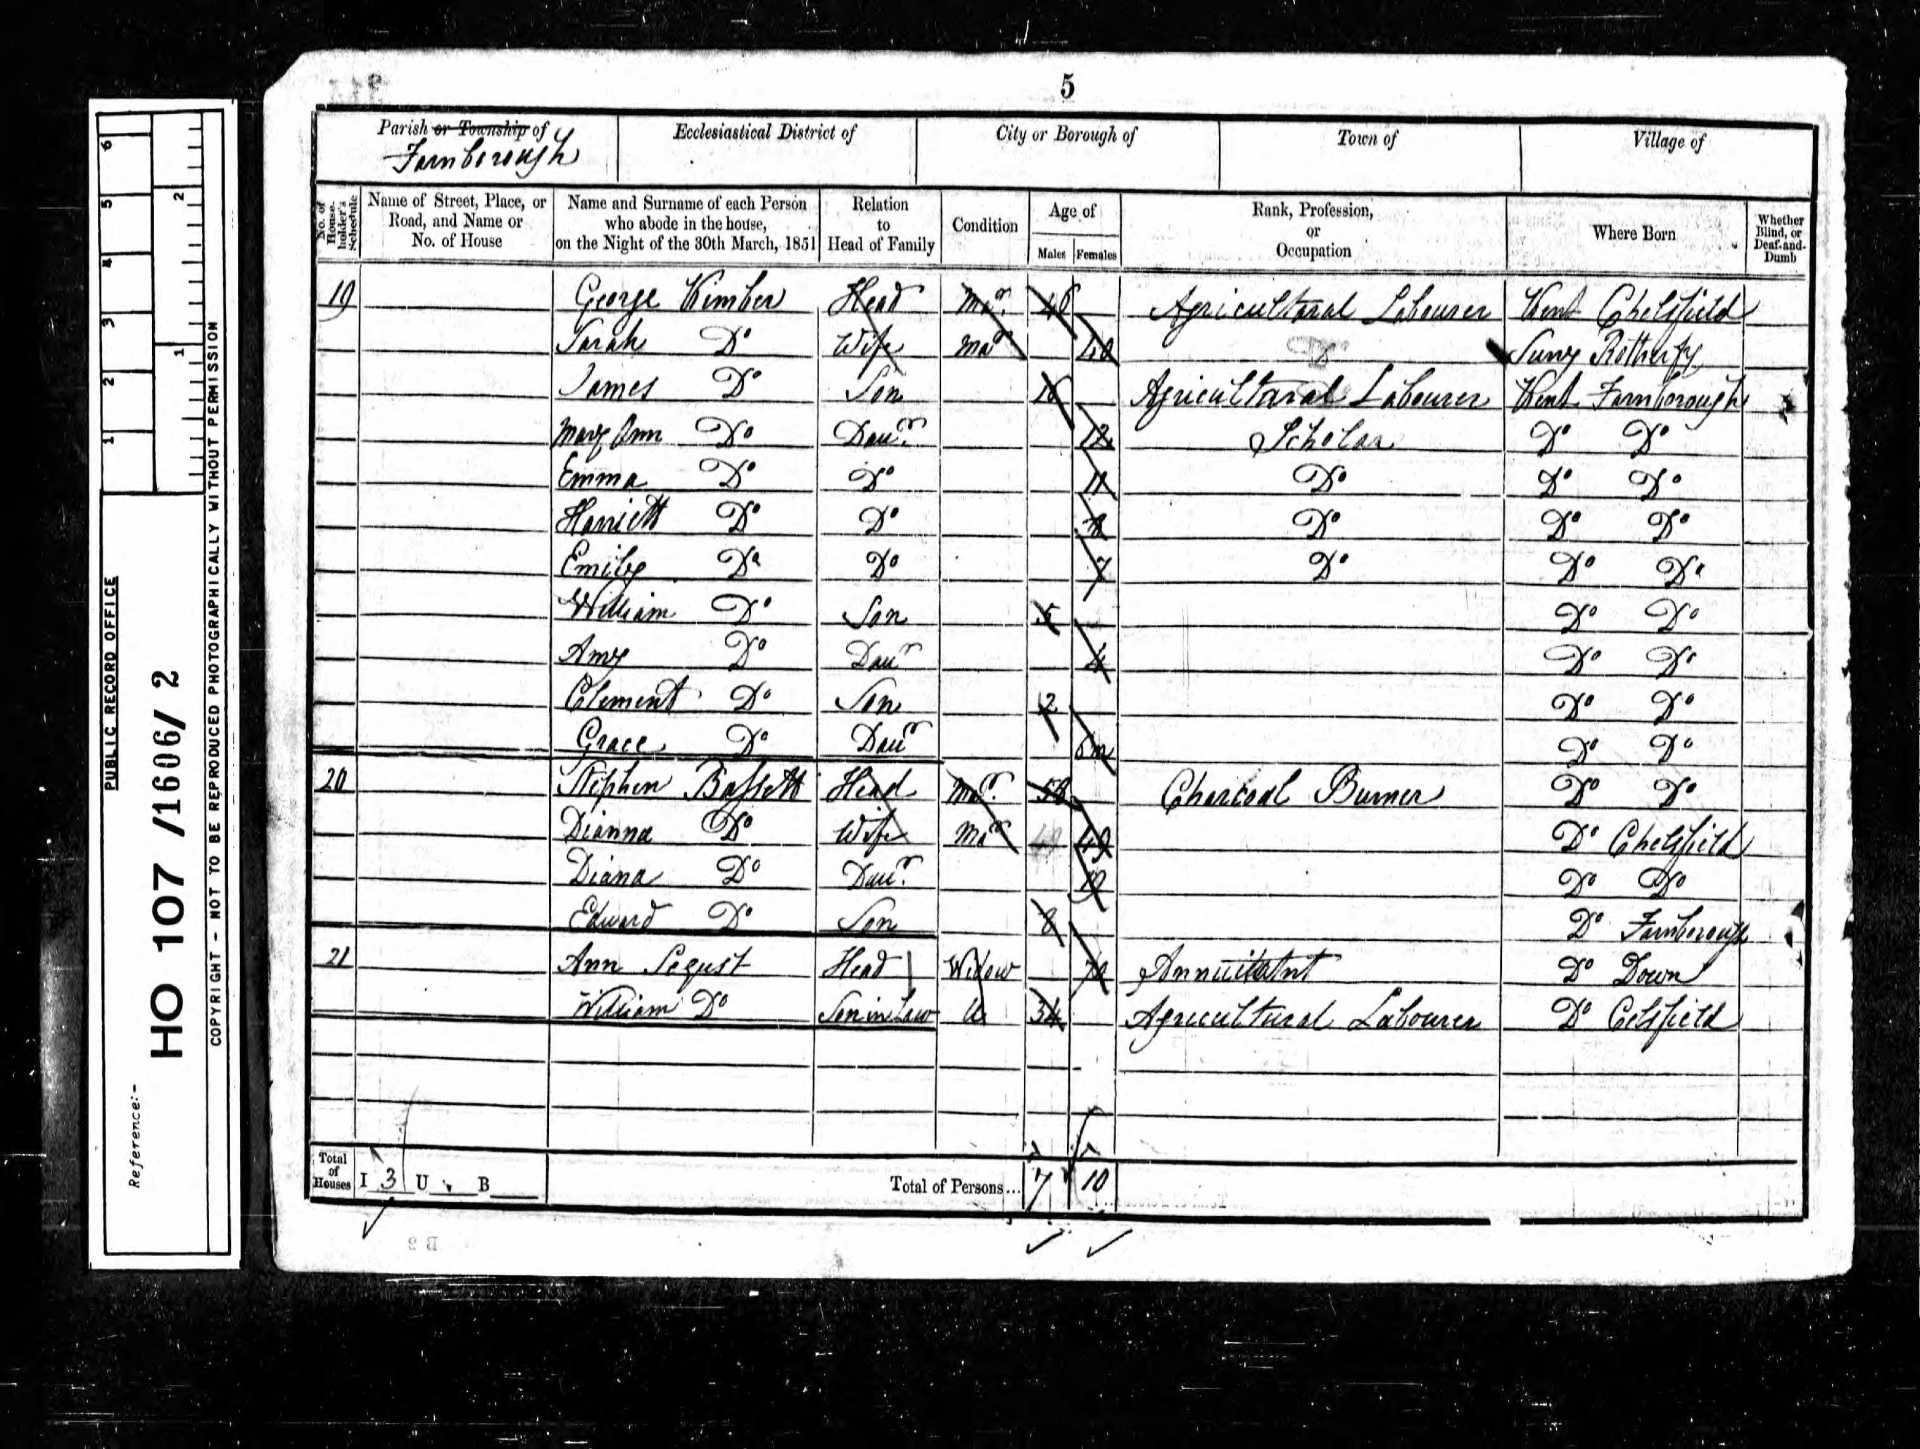 5
Parish or Township of
Farnborough
Ecclesiastical District of
City or Borough of
Town of
Village of
No. of House-holder's Schedule
Name of Street, Place, or Road, and Name or No. of House
Name and Surname of each Person who abode in the house, on the Night of the 30th March, 1851
Relation to Head of Family
Condition
Age of
Males Females
Rank, Profession, or Occupation
Where Born
Whether Blind, or Deaf-and-Dumb
19 George Kimber Head Mar. Agricultural Labourer Kent Chelsfield
Sarah Do Wife Mar 40 Surry
James Do Son 16 Agricultural Labourer Kent Farnborough
Mary Ann Do Daur. 12 Scholar Do Do
Emma Do Do 11 Do Do Do
Harriett Do Do Do Do Do
Emily Do Do 7 Do Do Do
William Do Son 5 Do Do
Amy Do Daur 4 Do Do
Clement Do Son 2 Do Do
Grace Do Daur 6m Do Do
20 Stephen Bassett Head Mar. Charcoal Burner Do Do
Dianna Do Wife Mar 49 Do Chelsfield
Diana Do Daur. 19 Do Do
Edward Do Son 8 Do Farnborough
21 Ann Segust Head Widow 70 Annuitant Do Down
William Do Son in Law U 34 Agricultural Labourer Do Celsfield
Total of Houses I 3 U B Total of Persons... 7 10
PUBLIC RECORD OFFICE
Reference:-
HO 107 /1606/ 2
COPYRIGHT - NOT TO BE REPRODUCED PHOTOGRAPHICALLY WITHOUT PERMISSION
1 2 3 4 5 6
1 2